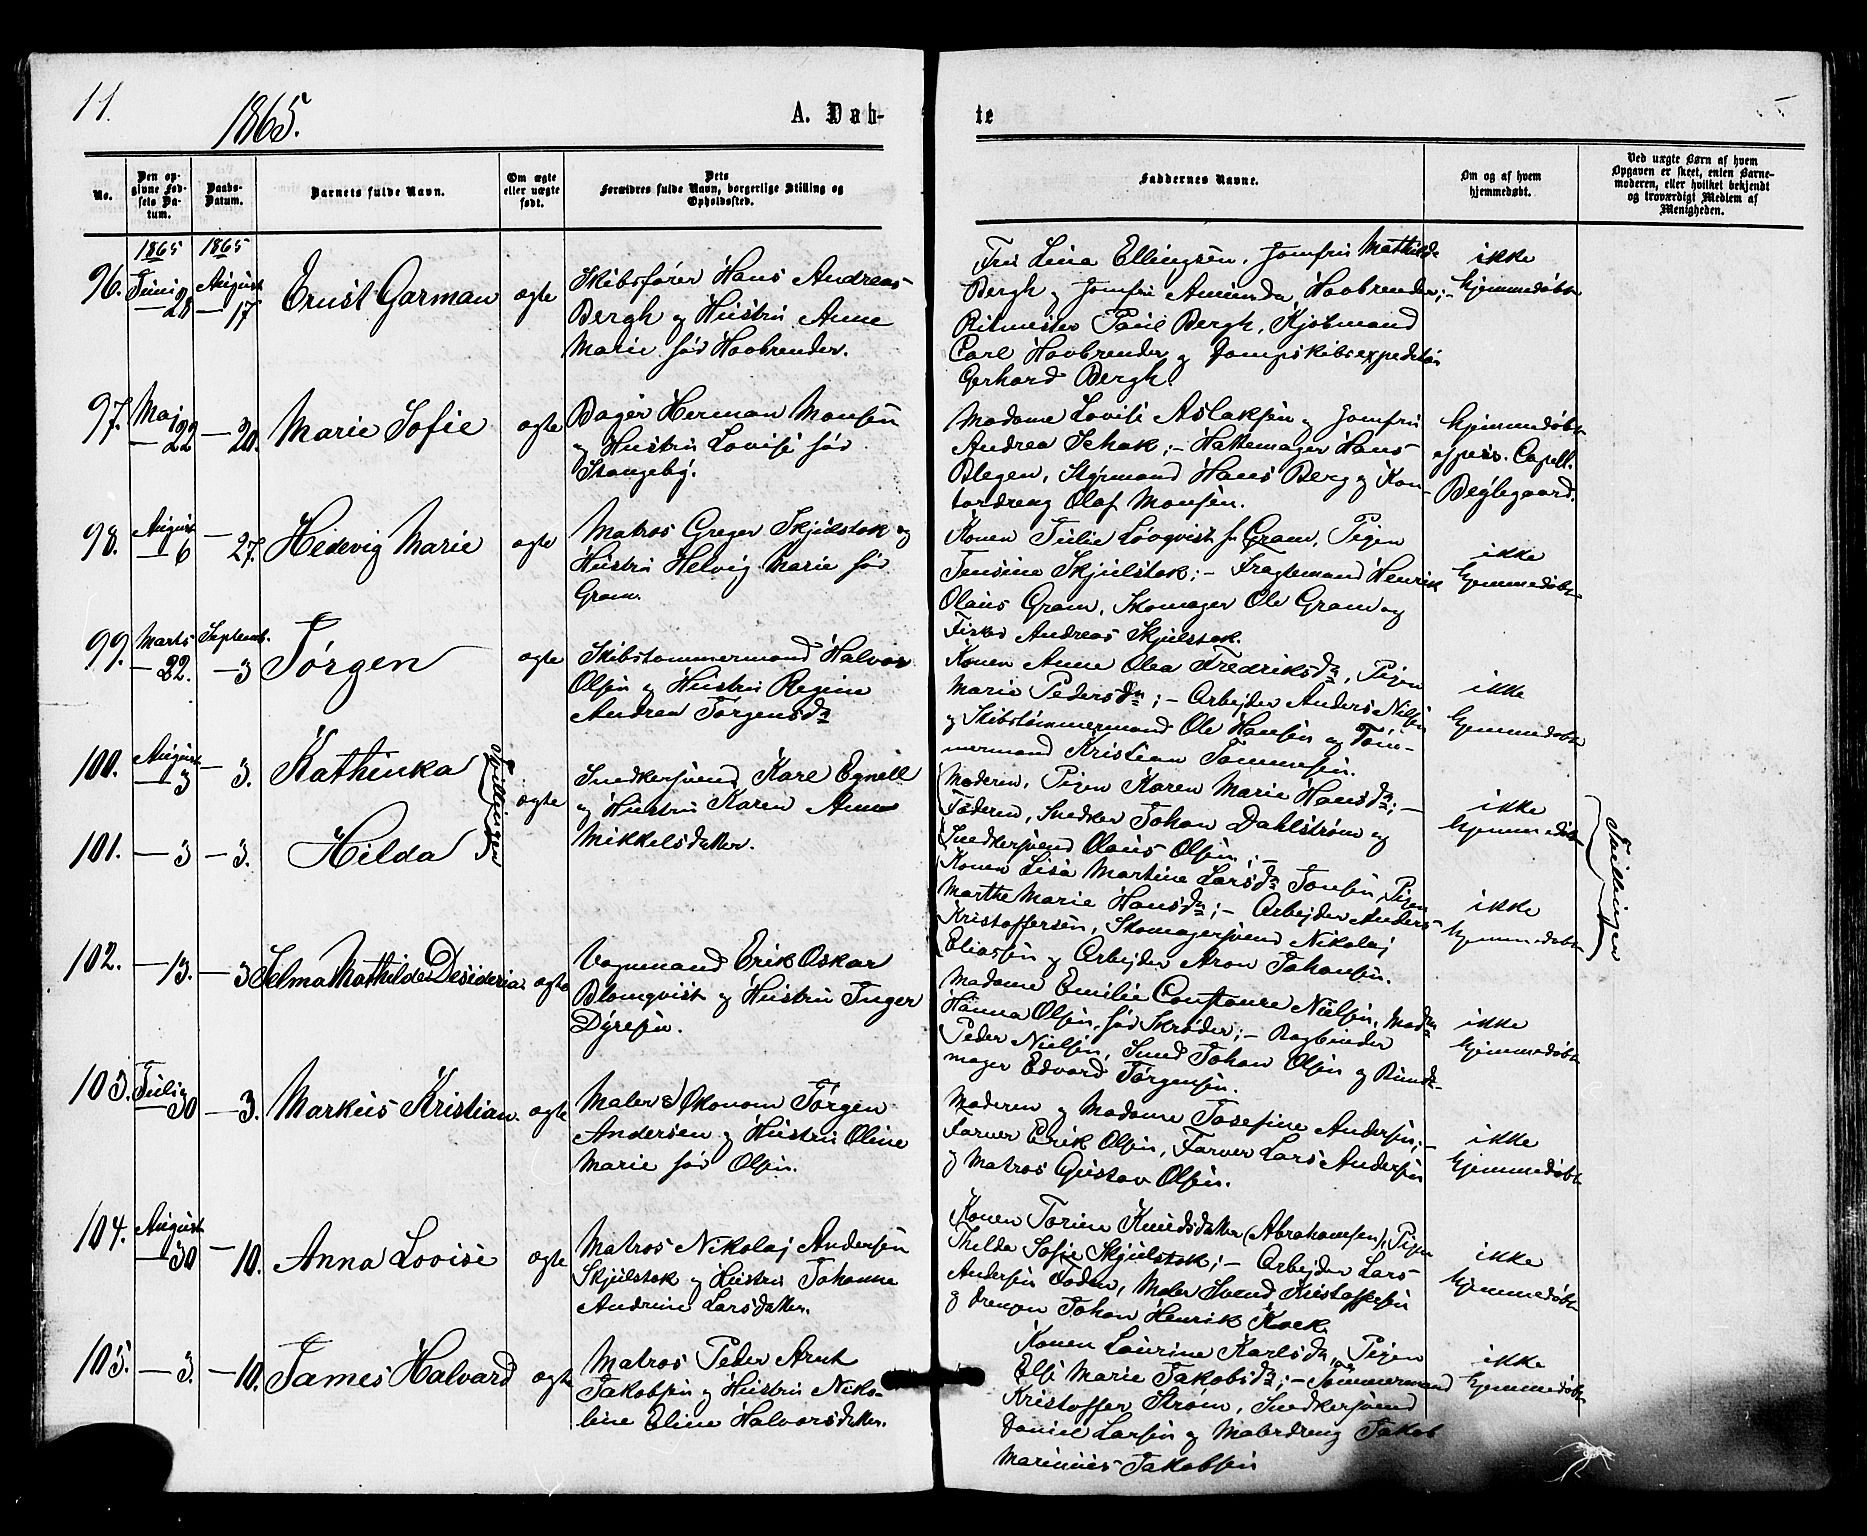 11.
1865.
A. Døb-
te
No.
Den opgivne Fødsels Datum.
Daabs-Datum.
Barnets fulde Navn.
Om ægte eller uægte født.
Dets Forældres fulde Navn, borgerlige Stilling og Opholdssted.
Faddernes Navne.
Om og af hvem hjemmedøbt.
Ved uægte Børn af hvem Opgaven er skeet, enten Barnemoderen, eller hvilket bekjendt og troværdigt Medlem af Menigheden.
1865 1865
96. Juni 28 August 17 Ernst Garman ægte
Skibsfører Hans Andreas
Bergh og Hustru Anne
Marie født Hovbrender.
Fru Lina Ellingsen, Jomfru Mathilde
Bergh og Jomfru Amunda Hovbrender;-
Ritmester Paul Bergh, Kjøbmand
Carl Hovbrender og Dampskibsexpeditør
Gerhard Bergh.
ikke
hjemmedøbt
97. Maj 22 — 20. Marie Sofie ægte
Bager Herman Monsen
og Hustru Lovise fød
Stangeby.
Madame Lovise Aslaksen og Jomfru
Andrea Schak;- Hattemager Hans
Blegen, Styrmand Hans Berg og Kon-
tordreng Olaf Monsen.
hjemmedøbt
af pers. Capell.
Bøylegaard.
98. August 6 — 27. Hedevig Marie ægte
Matros Greger Skjelstok og
Hustru Helvig Marie fød
Gram.
Konen Julie Lövqvist f. Gram, Pigen
Jensine Skjulstok;- Fragtemand Henrik
Olaus Gram, Skomager Ole Gram og
Fisker Andreas Skjulstok.
ikke
hjemmedøbt
99. Marts 22. Septemb. 3 Jørgen ægte
Skibstømmermand Halvor
Olsen og Hustru Regine
Andrea Jørgensdr
Konen Anne Olea Fredriksdr, Pigen
Marie Pedersdr;- Arbejder Anders Nilsen
og Skibstømmermand Ole Hansen og Tøm-
mermand Kristian Tommesen.
ikke
hjemmedøbt
100. August 3 — 3. Kathinka
101. — 3 — 3. Hilda
Tvillinger
ægte
Snedkersvend Karl Egnell
og Hustru Karen Anne
Mikkelsdatter.
Moderen, Pigen Karen Marie Hansdr;-
Faderen, Snedker Johan Dahlstrøm og
Snedkersvend Olaus Olsen;-
ikke
hjemmedøbt
Konen Lisa Martine Larsdr Jonsen, Pigen
Marthe Marie Hansdr;- Arbejder Anders
Kristoffersen, Skomagersvend Nikolaj
Eliassen og Arbejder Aron Johansen.
ikke
hjemmedøbt
Tvillinger
102. — 13. — 3 Selma Mathilde Desideria ægte
Vognmand Erik Oskar
Blomqvist og Hustru Inger
Dyresen.
Madame Emilie Constance Nielsen, Madm
Hanna Olsen, fød Skrøder;- Bogbinder
Peder Nielsen, Smed Johan Olsen og Bundt-
mager Edvard Jørgensen.
ikke
hjemmedøbt
103. Juli 30 — 3. Markus Kristian. ægte
Maler & Økonom Jørgen
Andersen og Hustru Oline
Marie fød Olsen.
Moderen og Madame Josefine Andersen;-
Farver Erik Olsen, Farver Lars Andersen
og Matros Gustav Olsen.
ikke
hjemmedøbt
104. August 30 — 10. Anna Lovise ægte
Matros Nikolaj Andersen
Skjulstok og Hustru Johanne
Andrine Larsdatter.
Konen Torine Knudsdatter (Abrahamsen), Pigen
Thilda Sofie Skjulstok;- Arbejder Lars
Andersen Foden, Maler Svend Kristoffersen
og Drengen Johan Henrik Kock.
ikke
hjemmedøbt
105. — 3. — 10. James Halvard ægte
Matros Peder Arnt
Jakobsen og Hustru Niko-
line Eline Halvorsdatter.
Konen Laurine Karlsdr, Pigen
Else Marie Jakobsdr;- Tømmermand
Kristoffer Strøm, Snedkersvend
Daniel Larsen og Malerdreng Jakob
Marinius Jakobsen
ikke
hjemmedøbt